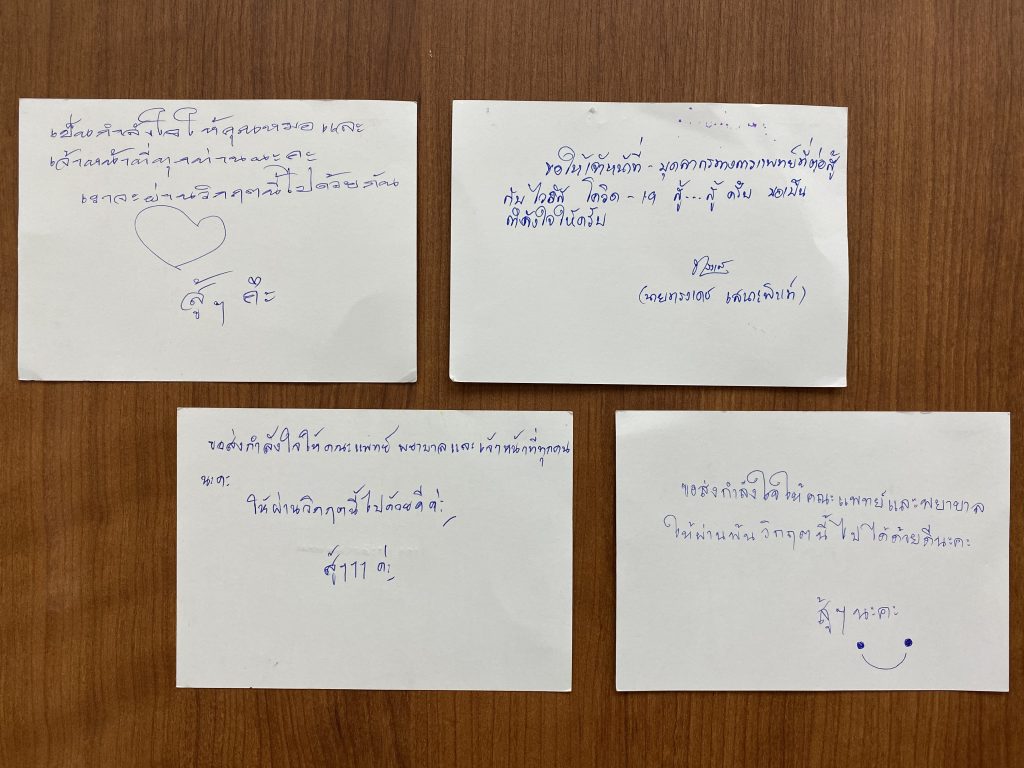 เป็นกำลังใจให้คุณหมอและ
เจ้าหน้าที่ทุกท่านนะคะ
เราจะผ่านวิกฤตนี้ไปด้วยกัน
สู้ๆ ค๊ะ
ขอให้เจ้าหน้าที่ - บุคลากรทางการแพทย์ที่ต่อสู้
กับไวรัส โควิด - 19 สู้...สู้ ครับ ขอเป็น
กำลังใจให้ครับ
ขอส่งกำลังใจให้คณะแพทย์ พยาบาลและเจ้าหน้าที่ทุกคน
นะคะ
ให้ผ่านวิกฤตนี้ไปด้วยดีค่ะ
สู้ๆๆๆ ค่ะ
ขอส่งกำลังใจให้คณะแพทย์และพยาบาล
ให้ผ่านพ้นวิกฤตนี้ไปได้ด้วยดีนะคะ
สู้ๆ นะคะ